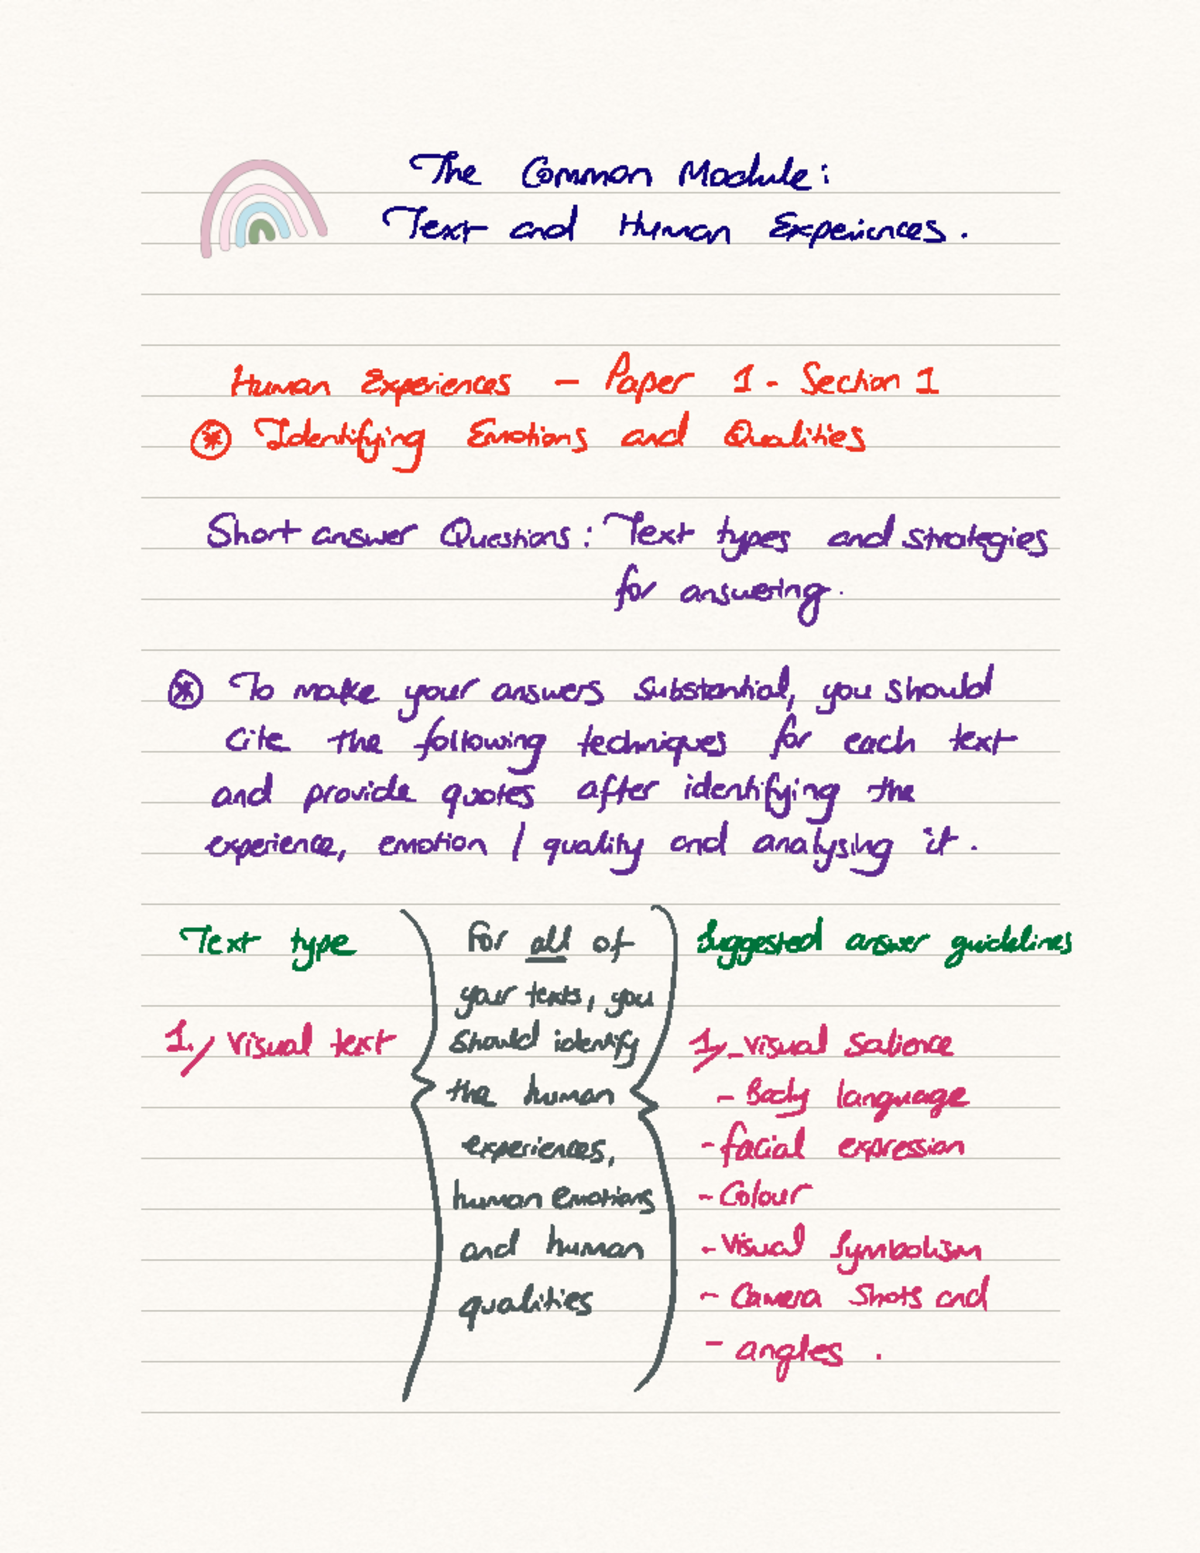 The Common Module:
Text and Human Experiences.
Human Experiences - Paper 1 - Section 1
* Identifying Emotions and Qualities
Short answer Questions: Text types and strategies
for answering.
* To make your answers substantial, you should
cite the following techniques for each text
and provide quotes after identifying the
experience, emotion / quality and analysing it.
Text type
1./ Visual text
For all of
your texts, you
should identify
the human
experiences,
human emotions
and human
qualities
Suggested answer guidelines
1/ - visual salience
- Body language
- facial expression
- Colour
- Visual Symbolism
- Camera Shots and
- angles .